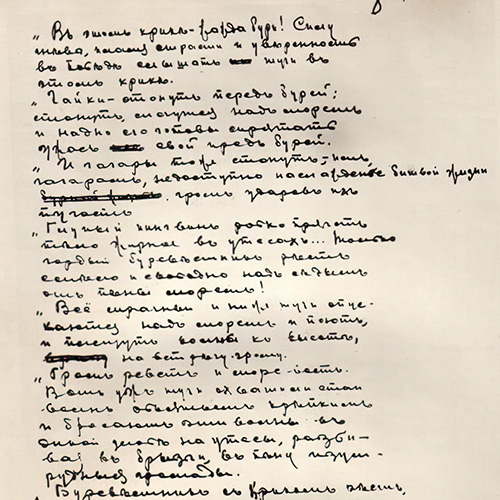 „Въ этомъ крикѣ–жажда бури! Силу
гнѣва, пламя страсти и увѣренность
въ побѣдѣ слышатъ тучи въ
этомъ крикѣ.
„Чайки–стонутъ передъ бурей;
стонутъ, мечутся надъ моремъ
и на дно его готовы спрятать
ужасъ свой предъ бурей.
„И гагары тоже стонутъ,–имъ,
гагарамъ, недоступно наслажденье битвой жизни
громъ ударовъ ихъ
пугаетъ
„Глупый пингвинъ робко прячетъ
тѣло жирное въ утесахъ... Только
гордый буревѣстникъ рѣетъ
смѣло и свободно надъ сѣдымъ
отъ пѣны моремъ!
„Всё мрачнѣй и ниже тучи опус-
каются надъ моремъ и поютъ,
и волны къ высотѣ,
на встрѣчу грому.
„Громъ реветъ и море
Вотъ ужъ стаи
волнъ объятьемъ крѣпкимъ
и бросаютъ волны въ
дикой злобѣ на утесы, разби-
вая въ брызги, въ пыль изум-
рудныя громады.
Буревѣстникъ съ крикомъ рѣетъ